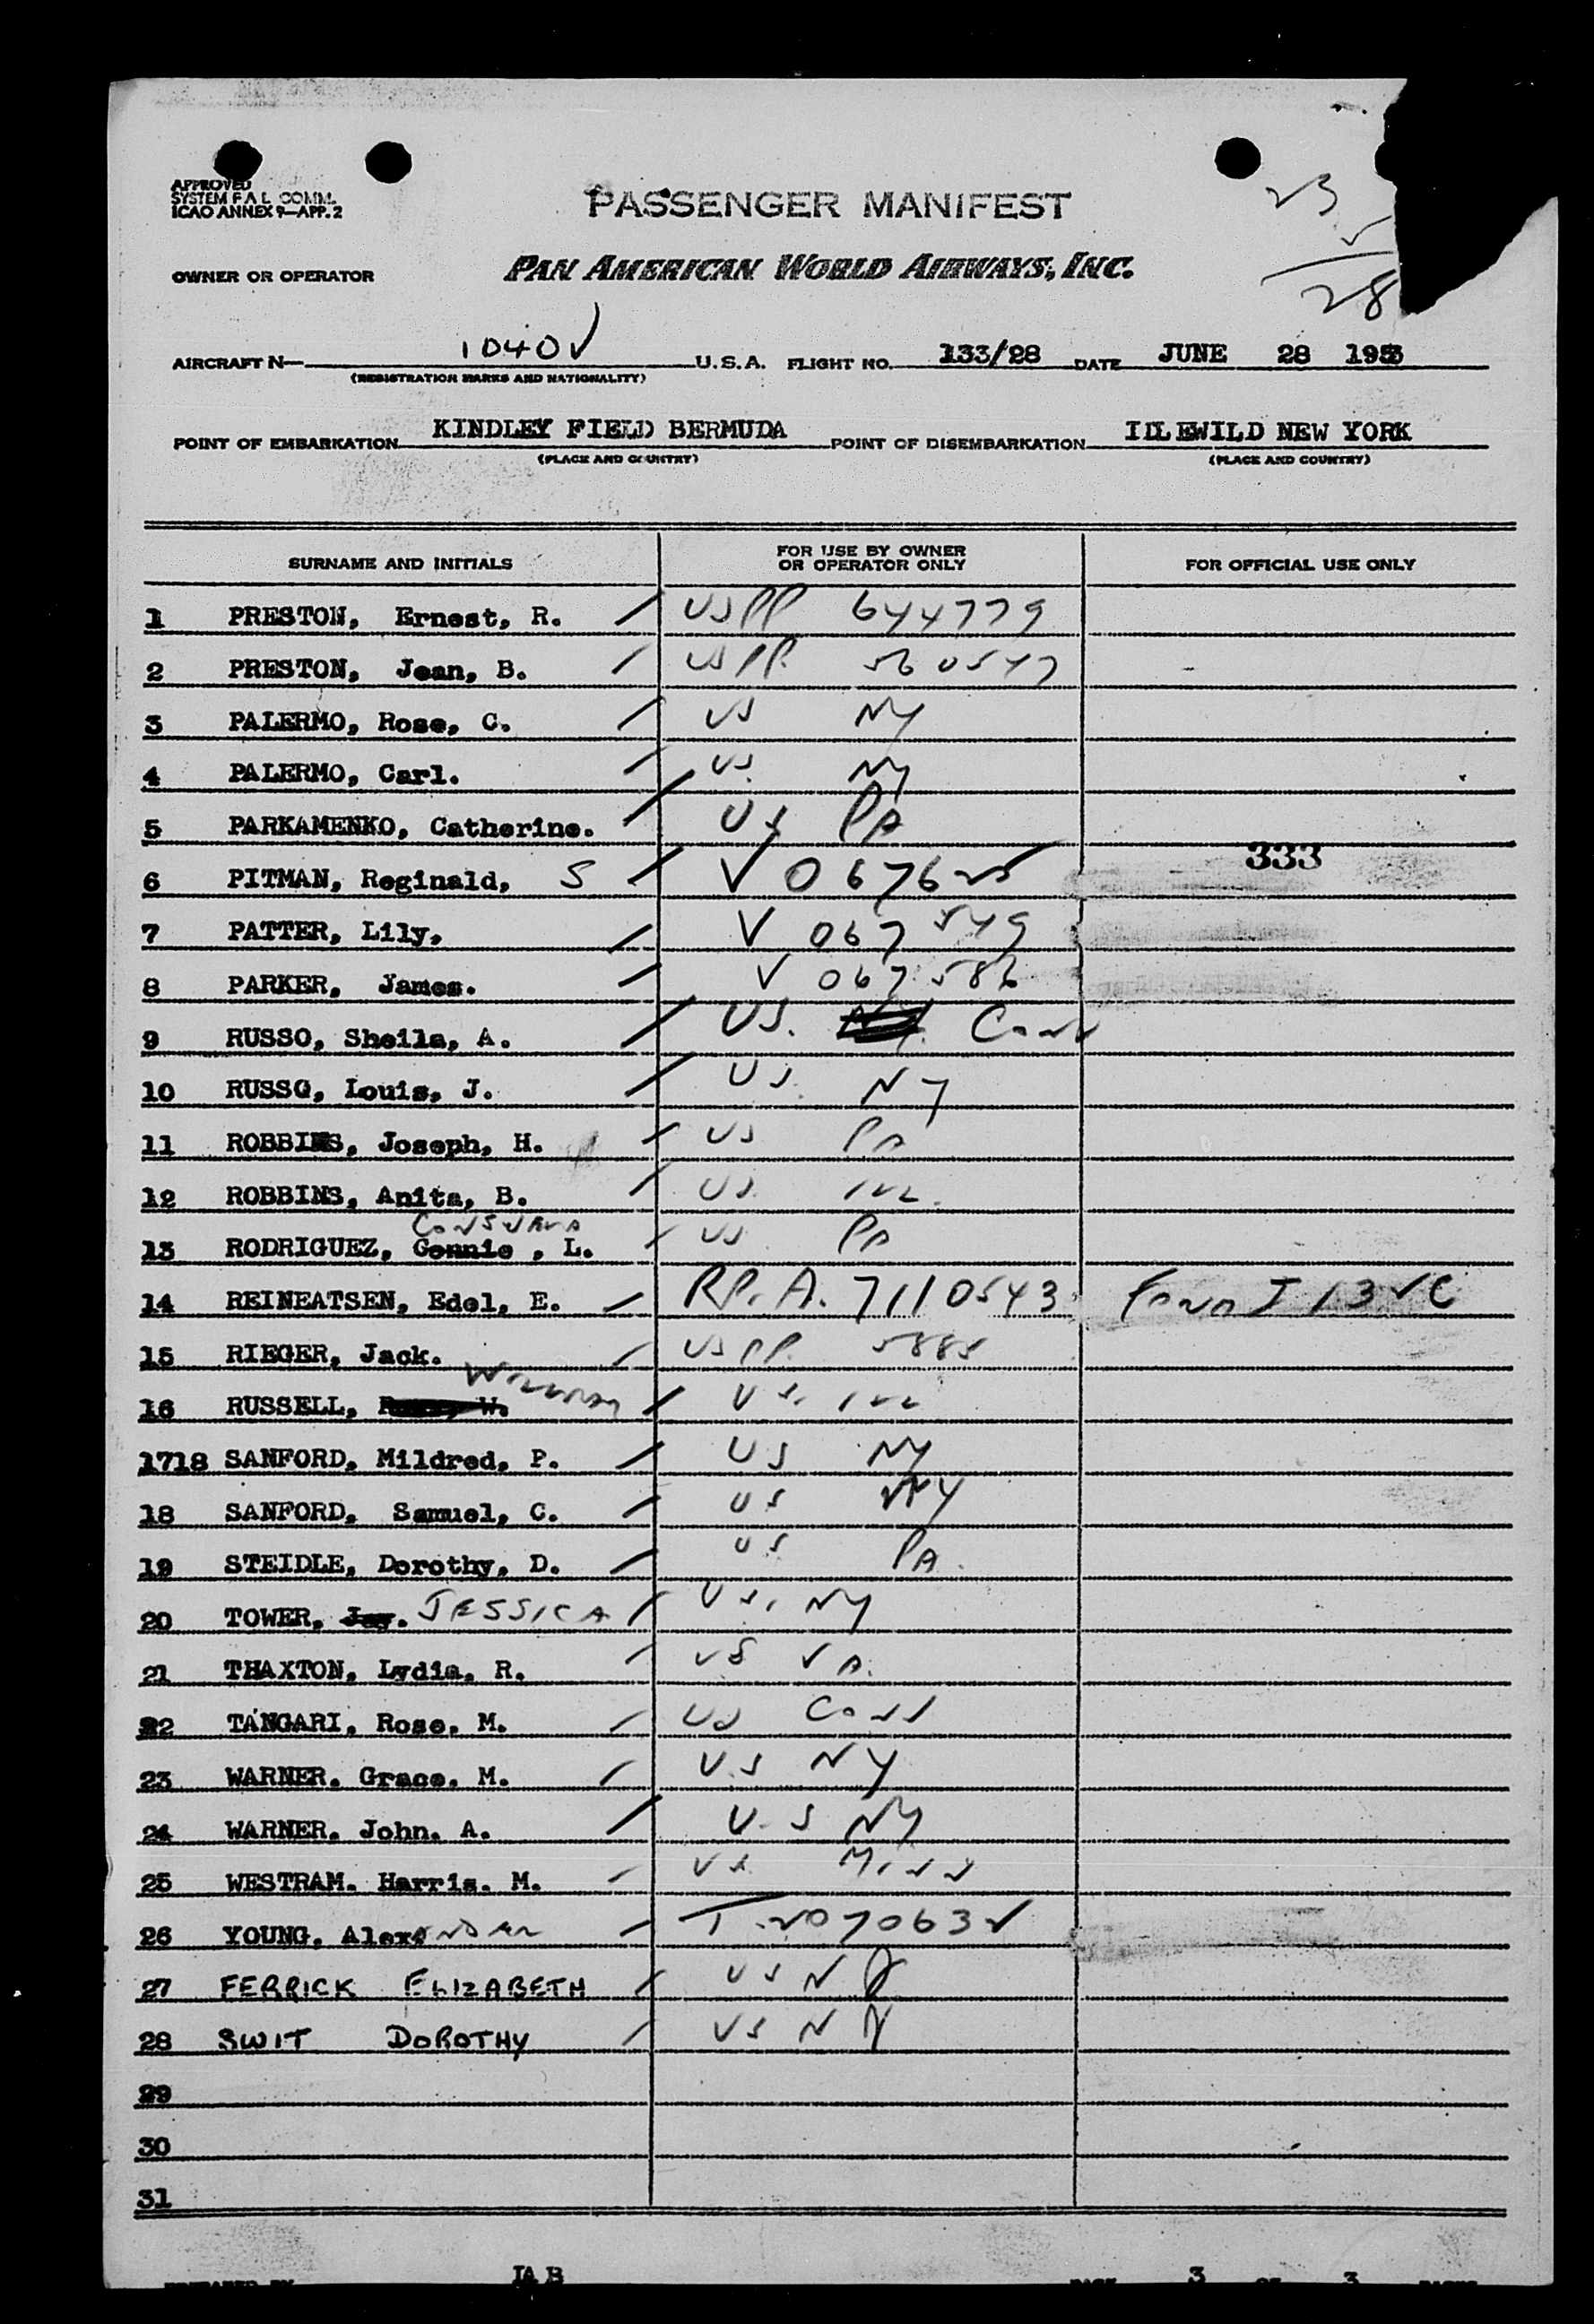 APPROVED
SYSTEM F A L COMM.
ICAO ANNEX 9—APP. 2
PASSENGER MANIFEST
23
5
28
OWNER OR OPERATOR PAN AMERICAN WORLD AIRWAYS, INC.
AIRCRAFT N— 1040V U.S.A. FLIGHT NO. 133/28 DATE JUNE 28 195
(REGISTRATION MARKS AND NATIONALITY)
POINT OF EMBARKATION KINDLEY FIELD BERMUDA POINT OF DISEMBARKATION IDLEWILD NEW YORK
(PLACE AND COUNTRY) (PLACE AND COUNTRY)
SURNAME AND INITIALS FOR USE BY OWNER OR OPERATOR ONLY FOR OFFICIAL USE ONLY
1 PRESTON, Ernest, R. / USPP 644779
2 PRESTON, Jean, B. / USPP. 560547
3 PALERMO, Rose, C. / US NY
4 PALERMO, Carl. / US. NY
5 PARKAMENKO, Catherine. / US PA
333
6 PITMAN, Reginald, S / V 067625
7 PATTER, Lily, / V 067549
8 PARKER, James. / V 067586
9 RUSSO, Sheila, A. / US. Conn
10 RUSSO, Louis, J. / US. NY
11 ROBBINS, Joseph, H. / US PA
12 ROBBINS, Anita, B. / US. ILL.
13 RODRIGUEZ, Connie , L. / US PA
14 REINEATSEN, Edel, E. / RP. A. 7110543 Form I 132C
15 RIEGER, Jack. / USPP. 5885
16 RUSSELL, / US. ILL
1718 SANFORD, Mildred, P. / US NY
18 SANFORD, Samuel, C. / US NY
19 STEIDLE, Dorothy, D. / US PA.
20 TOWER, Jay. JESSICA / US, NY
21 THAXTON, Lydia, R. / US VA.
22 TANGARI, Rose, M. / US Conn
23 WARNER. Grace. M. / U.S NY
24 WARNER. John. A. / U.S NY
25 WESTRAM. Harris. M. / US. Miss
26 YOUNG, Alexander / T. 2070632
27 FERRICK ELIZABETH / US NY
28 SWIT DOROTHY / US NY
29
30
31
IAB 3 3